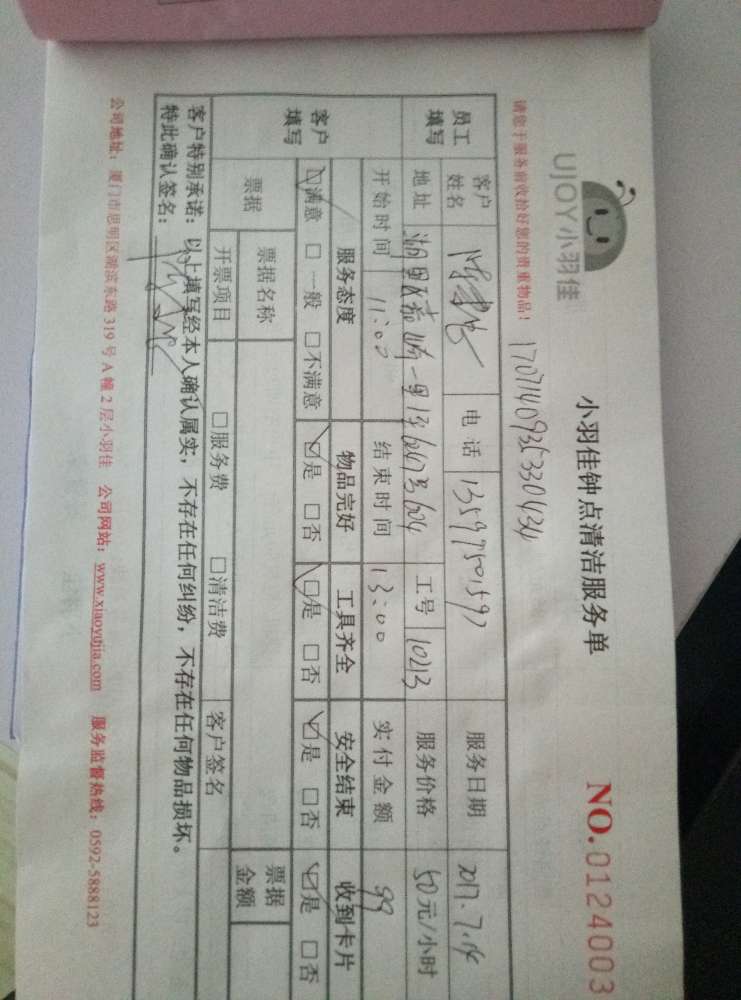 UJOY小羽佳
小羽佳钟点清洁服务单
NO.0124003
请您于服务前收拾好您的贵重物品！
17071409353330434
员工填写 客户姓名 电话 13597501597 服务日期 2017.7.14
地址 湖里区 工号 10213 服务价格 50元/小时
开始时间 11:00 结束时间 13:00 实付金额 99
客户填写 服务态度 物品完好 工具齐全 安全结束 收到卡片
☑满意 □一般 □不满意 ☑是 □否 ☑是 □否 ☑是 □否 ☑是 □否
票据 票据名称 票据金额
开票项目 □服务费 □清洁费 客户签名
客户特别承诺：以上填写经本人确认属实，不存在任何纠纷，不存在任何物品损坏。
特此确认签名：
公司地址：厦门市思明区湖滨东路319号A幢2层小羽佳 公司网站：www.xiaoyujia.com 服务监督热线：0592-5888123